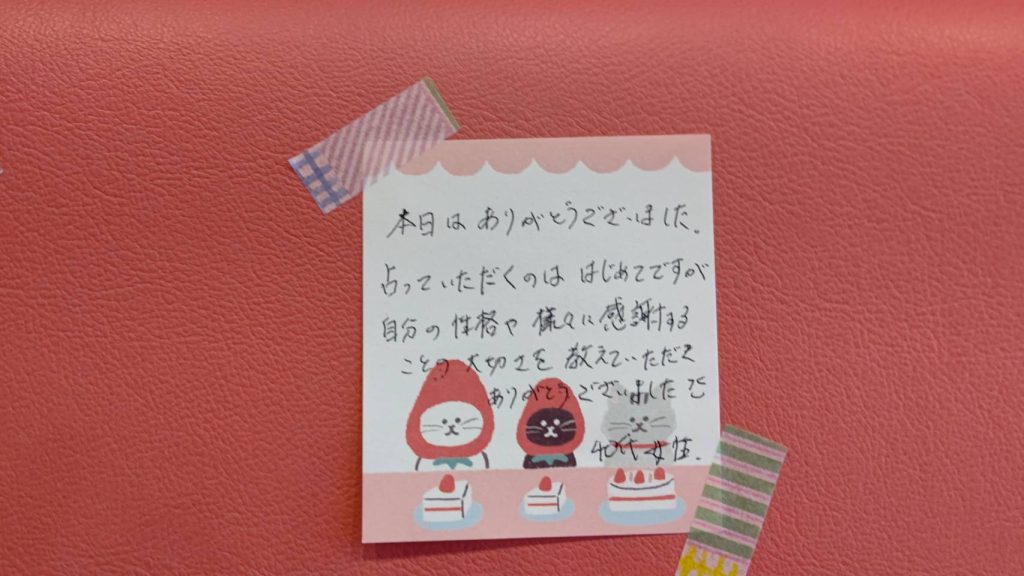 本日は ありがとうございました。
占っていただくのは はじめてですが
自分の性格や 様々に感謝する
ことの大切さを 教えていただき
ありがとうございました
40代 女性.